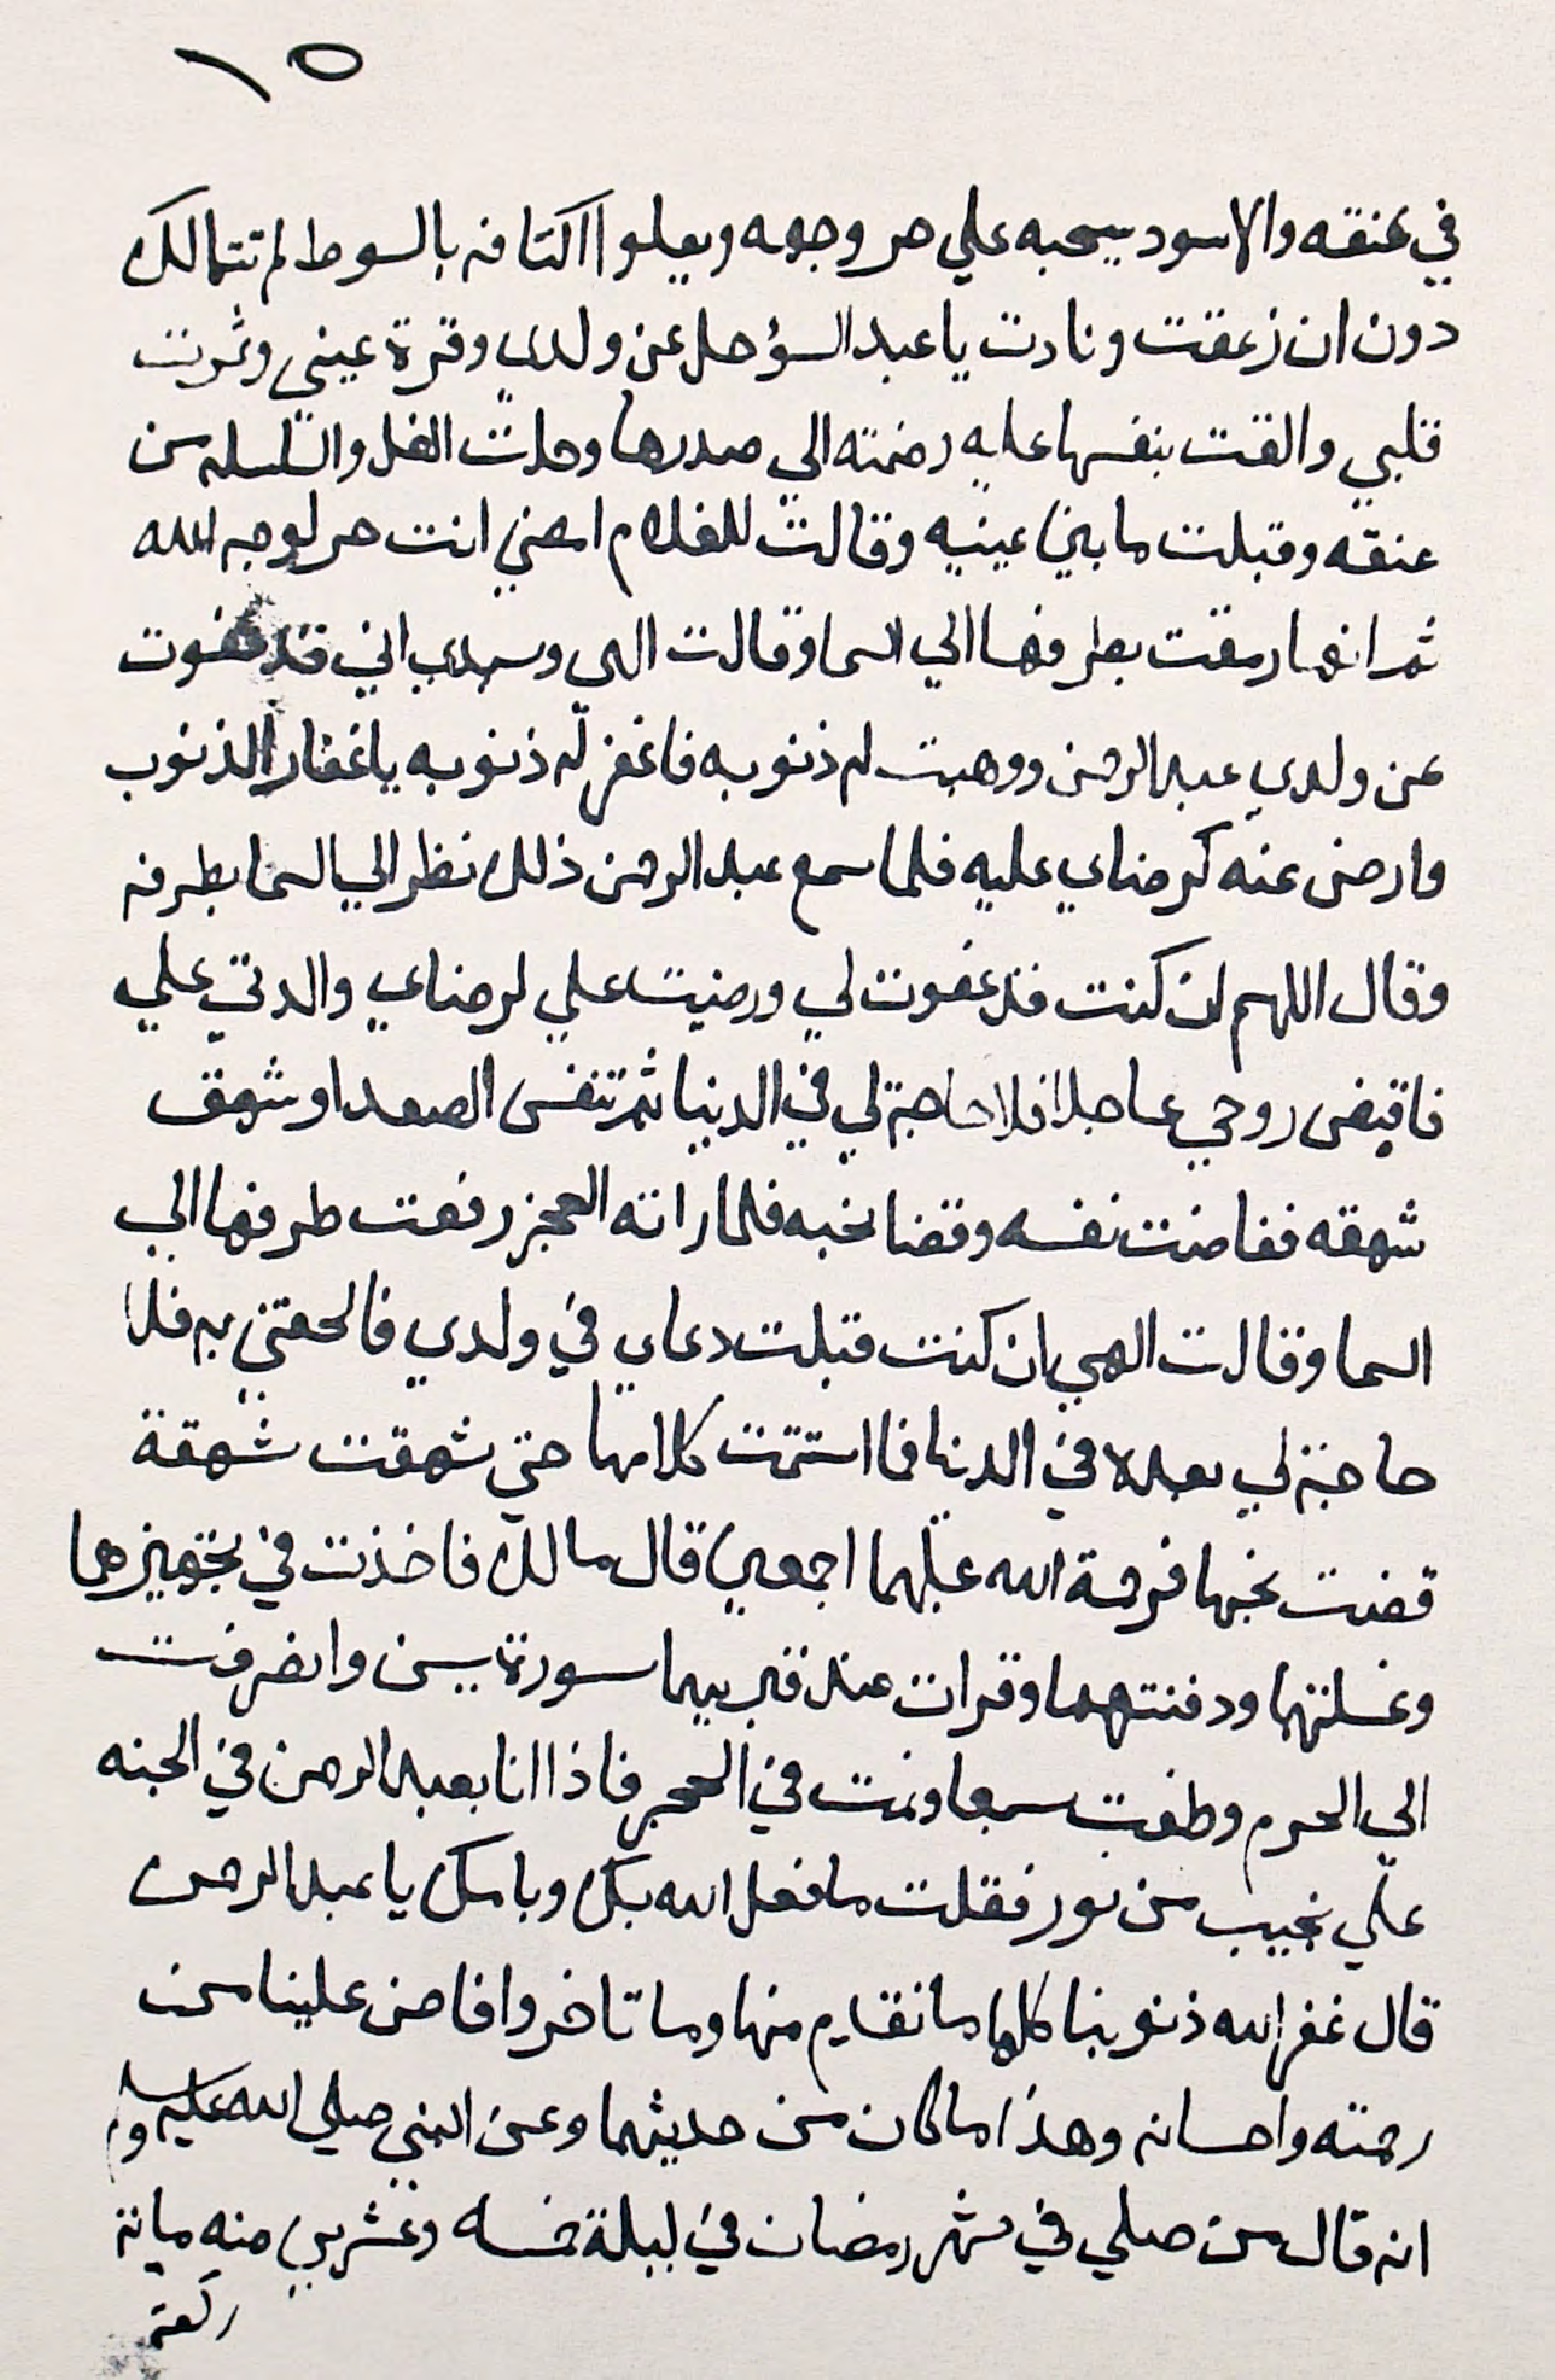 ١٥
في عنقه والاسود يسحبه علي حر وجهه ويعلوا اكتافه بالسوط لم تتمالك
دون ان زعقت ونادت يا عبد السؤ حل عن ولدي وقرة عيني وثمرت
قلبي والقت بنفسها عليه وضمته الي صدرها وحلت الغل والسلسله من
عنقه وقبلت ما بين عينيه وقالت للغلام امضي انت حر لوجه الله
ثم انها رمقت بطرفها الي السما وقالت الهي وسيدي اني قد عفوت
عن ولدي عبد الرحمن ووهبت له ذنوبه فاغفر له ذنوبه يا غفار الذنوب
وارضي عنه كرضاي عليه فلما سمع عبد الرحمن ذلك نظر الي السما بطرفه
وقال اللهم ان كنت قد عفوت لي ورضيت علي لرضاي والدتي علي
فاقبض روحي عاجلا فلا حاجة لي في الدنيا ثم تنفس الصعدا وشهق
شهقه ففاضت نفسه وقضا نحبه فلما راته العجز رفعت طرفها الي
السما وقالت الهي ان كنت قبلت دعاي في ولدي فالحقني به فلا
حاجة لي بعده في الدنيا فما استتمت كلامها حتي شهقت شهقة
قضت نحبها فرحمة الله عليهما اجمعين قال مالك فاخذت في تجهيزهما
وغسلتهما ودفنتهما وقرات عند قبريهما سورة يسن وانصرفت
الي الحرم وطفت سبعا ونمت في الحجر فاذا انا بعبد الرحمن في الجنه
علي نجيب من نور فقلت ما فعل الله بك وبامك يا عبد الرحمن
قال غفر الله ذنوبنا كلها ما تقدم منها وما تاخر وافاض علينا من
رحمته واحسانه وهذا ما كان من حديثهما وعن النبي صلي الله عليه وسلم
انه قال من صلي في شهر رمضان في ليلة خمسه وعشرين منه ماية
ركعة